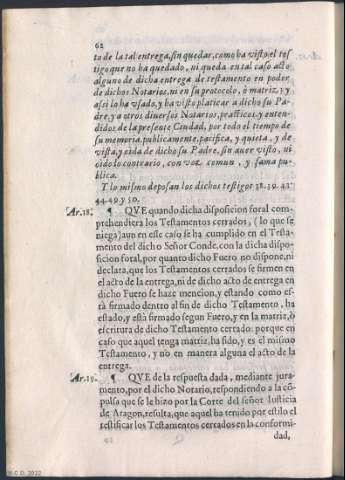 62
to de la tal entrega, sin quedar, como ha visto el tes
tigo que no ha quedado, ni queda en tal caso acto
alguno de dicha entrega de testamento en poder
de dichos Notarios, ni en su protocolo, ò matriz, i y
asi lo ha vsado, y ha visto platicar a dicho su Pa-
dre, y a otros diuersos Notarios, practicos, y enten-
didos de la presente Ciudad, por todo el tiempo de
su memoria, publicamente, pacifica, y quieta, y de
vista, y oìda de dicho su Padre, sin auer visto, ni
oìdo lo contrario, con voz comun, y fama pu-
blica.
Y lo mismo deposan los dichos testigos 38. 39. 42.
44. 49 y 50.
Ar. 18. ¶ QVE quando dicha disposicion foral com-
prehendiera los Testamentos cerrados, (lo que se
niega) aun en esse caso se ha cumplido en el Testa-
mento del dicho Señor Conde, con la dicha dispo-
sicion foral, por quanto dicho Fuero no dispone, ni
declara, que los Testamentos cerrados se firmen en
el acto de la entrega, ni de dicho acto de entrega en
dicho Fuero se haze mencion, y estando como es-
tà firmado dentro al fin de dicho Testamento, ha
estado, y està firmado segun Fuero, y en la matriz, ò
escritura de dicho Testamento cerrado: porque en
caso que aquel tenga matriz, ha sido, y es el mismo
Testamento, y no en manera alguna el acto de la
entrega.
Ar. 19. ¶ QVE de la respuesta dada, mediante jura-
mento, por el dicho Notario, respondiendo a la cõ-
pulsa que se le hizo por la Corte del señor Iusticia
de Aragon, resulta, que aquel ha tenido por estilo el
testificar los Testamentos cerrados en la conformi-
dad,
B.C.D. 2022